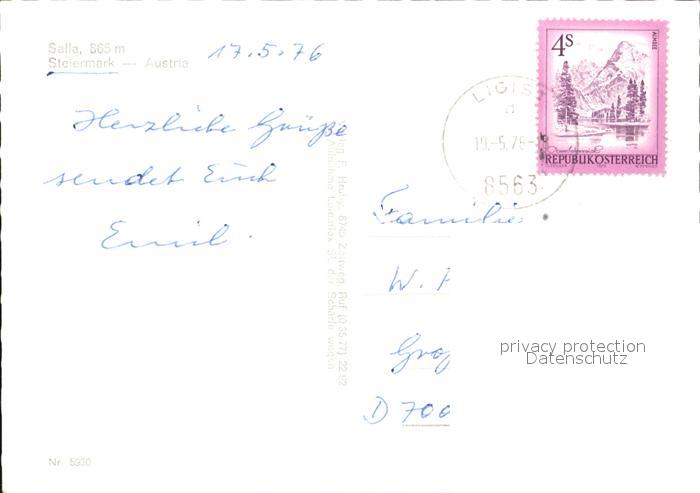 Salla, 865 m
Steiermark — Austria
17.5.76
Herzliche Grüße
sendet Euch
Emil.
4S
ALMSEE
REPUBLIK ÖSTERREICH
LIGIST
19.-5.76-
8563
Familie
W.
D 700
privacy protection
Datenschutz
F. Hruby, 8740 Zeltweg, Ruf (0 35 77) 22
der Schärfe wegen
Nr. 5930